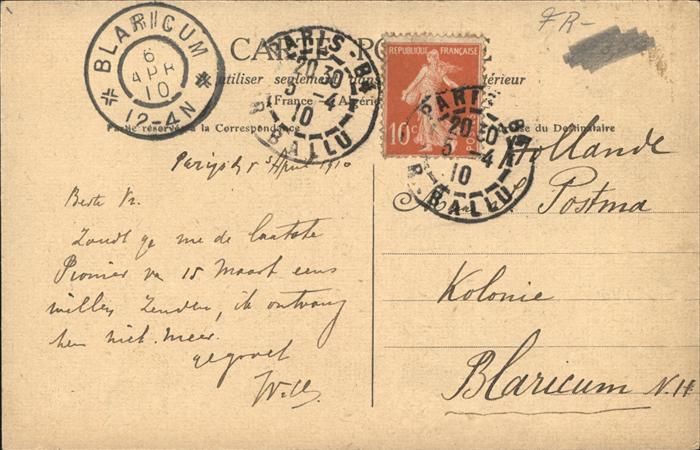 FR-
BLARICUM
6
APR
10
12-4N
CARTE PO
utiliser seulement dans érieur
(France Algérie
PARIS
20 30
5 -4
10
R. BALLU
REPUBLIQUE FRANÇAISE
10c
POSTES
PARIS
20 30
5 -4
10
R. BALLU
Partie réservée à la Correspondance
se du Destinataire
Parijs 5 April 1910
Beste Vr.
Zoudt ge me de laatste
Pionier van 15 Maart eens
willen zenden, ik ontvang
hem niet meer.
gegroet
Hollande
Postma
Kolonie
Blaricum N.H.